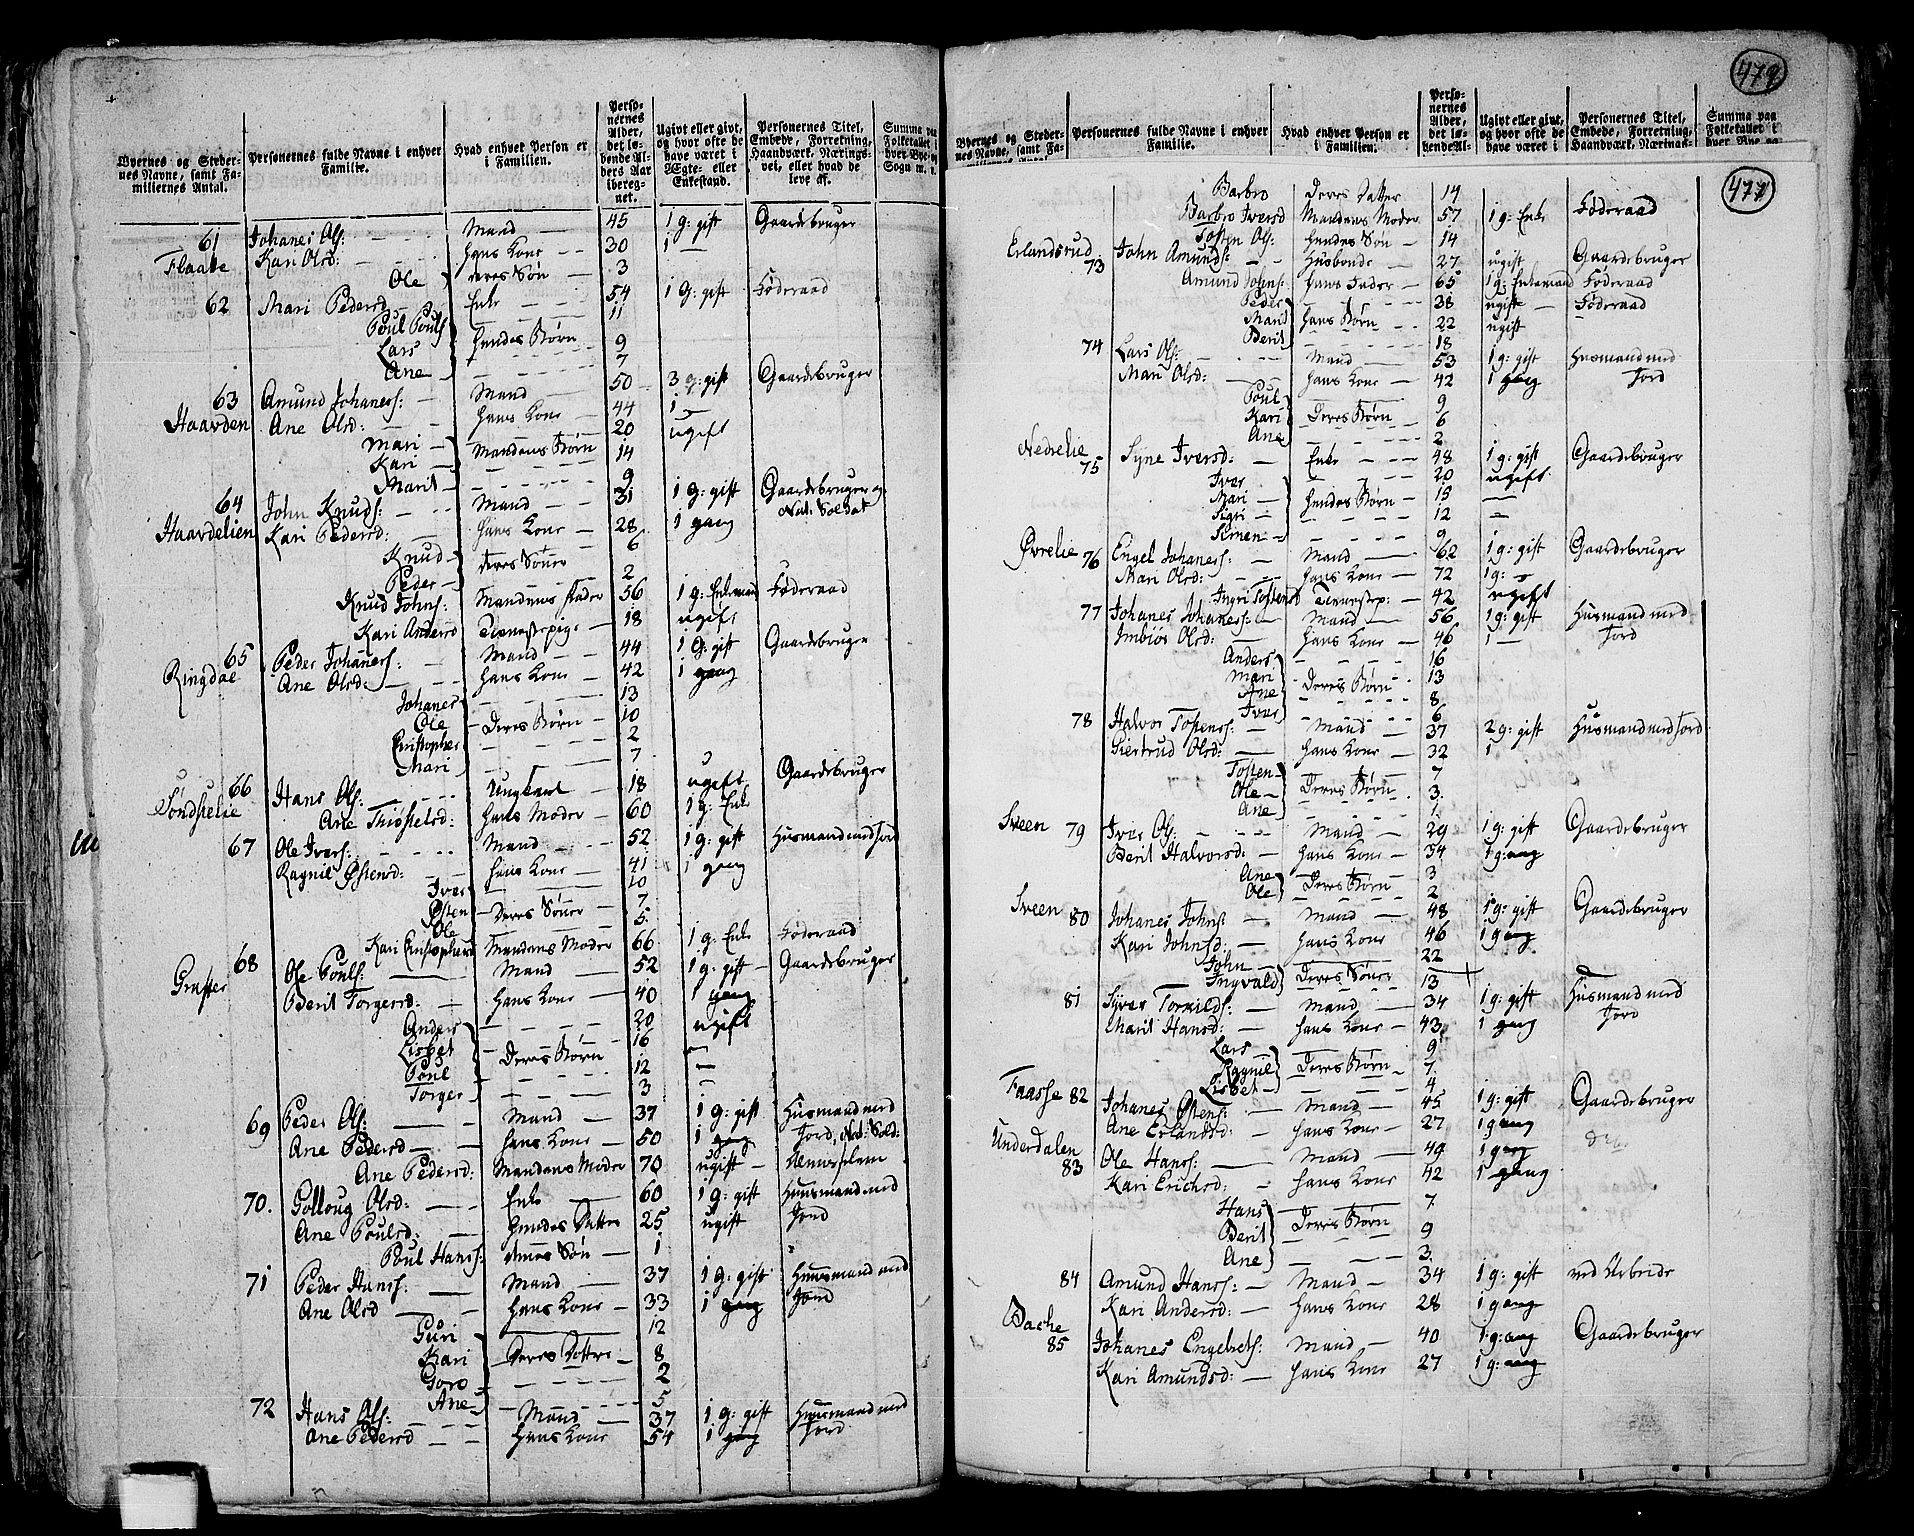 Byernes og Stedernes Navne, samt Familiernes Antal. | Personernes fulde Navne i enhver Familie. | Hvad enhver Person er i Familien. | Personernes Alder, det løbende Alders Aar iberegnet. | Ugivt eller givt, og hvor ofte de have været i Ægte- eller Enkestand. | Personernes Titel, Embede, Forretning, Haandværk, Næringsvei, eller hvad de leve af. | Summa paa Folketallet i hver Bye og Sogn
61 Johanes Ols: Mand 45 1 g: gift Gaardebruger
Flaate Kari Olsd: hans Kone 30 1
Ole deres Søn 3
62 Mari Pedersd Enke 54 1 g: gift Føderaad
Poul Pouls 11
Lars hendes Børn 9
Ane 7
63 Amund Johaness: Mand 50 3 g: gift Gaardebruger
Haavden Ane Olsd: hans Kone 44 1
Mari 20 ugift
Kari Mandens Børn 14
Marit 9
64 John Knuds: Mand 31 1 g: gift Gaardebruger og Nat: Soldat
Haavdelien Kari Pedersd: hans Kone 28 1 gang
Knud deres Sönner 6
Peder 2
Knud Johns: Mandens fader 56 1 g: Enkemand Føderaad
Kari Andersd Tienestepige 18 ugift
65 Peder Johaness: Mand 44 1 g: gift Gaardebruger
Ringdae Ane Olsd: hans Kone 42 1 gang
Johanes 13
Ole Deres Børn 10
Christopher 2
Mari 7
66 Hans Ols: Ungkarl 18 ugift Gaardebruger
Søndstelie Ane Thiøstelsd: hans Moder 60 1 g: Enke
67 Ole Ivers: Mand 52 1 g: gift Husmand med Jord
Ragnil Østensd: hans Kone 41 1 gang
Iver 10
Østen Deres Sönner 7
Ole 5
Kari Christophersd Mandens Moder 66 1 g: Enke Føderaad
68 Ole Pouls: Mand 52 1 g: gift Gaardebruger
Berit Torgersd: hans Kone 40 1 gang
Anders 20 ugift
Lisbet Deres Børn 16
Poul 12
Torger 3
69 Peder Ols: Mand 37 1 g: gift Husmand med
Ane Pedersd hans Kone 50 1 gang Jord, Nat: Sold:
Ane Pedersd: Mandens Moder 70 ugift Almislem
70. Gollaug Olsd: Enke 60 1 g: gift Huusmand med
Ane Poulsd: hendes Datter 25 ugift Jord
Poul Hanss: Anes Søn 1
71 Peder Hanss: Mand 37 1 g: gift Huusmand med
Ane Olsd hans Kone 33 1 gang Jord
Guri 12
Kari Deres Døttre 8
Goro 2
Ane 5
72 Hans Ols: Mand 37 1 g: gift Huusmand med
Ane Pedersd hans Kone 54 1 gang Jord
479
Byernes og Stedernes Navne, samt Familiernes Antal | Personernes fulde Navne i enhver Familie. | Hvad enhver Person er i Familien. | Personernes Alder, det løbende Al- | Ugivt eller givt, og hvor ofte de have været i | Personernes Titel, Embede, Forretning, Haandværk, Nærings- | Summa paa Folketallet i hver Bye og
477
Barbro Deres Datter 14
Barbro Iversd Mandens Moder 57 1 g: Enke Føderaad
Tosten Ols: hendes Søn 14
Erlandsrud 73 John Amunds: Husbonde 27 ugift Gaardebruger
Amund Johns: hans Fader 65 1 g: Enkemand Føderaad
Peder 38 ugift Føderaad
Marit hans Børn 22 ugift
Berit 18
74 Lars Ols: Mand 53 1 g: gift Husmand med
Mari Olsd: hans Kone 42 1 gang Jord
Poul 9
Kari Deres Børn 6
Ane 2
Nedrelie 75 Syne Iversd: Enke 48 1 g: gift Gaardebruger
Iver 20 ugift
Mari hendes Børn 15
Sigri 12
Simen 9
Øvrelie 76 Engel Johaness: Mand 62 1 g: gift Gaardebruger
Mari Olsd: hans Kone 72 1 g:
Ingri Tostensd Tienestep: 42 ugift
77 Johanes Johaness: Mand 56 1 g: gift Husmand med
Imbiør Olsd: hans Kone 46 1 Jord
Anders 16
Mari Deres Børn 13
Ane 8
Iver 6
78 Halvor Tostens: Mand 37 2 g: gift Husmand med Jord
Giertrud Olsd: hans Kone 32 1
Tosten 7
Ole Deres Børn 3
Ane 1
Sveen 79 Iver Ols: Mand 29 1 g: gift Gaardebruger
Berit Halvorsd: hans Kone 34 1 gang
Ane 3
Ole Deres Børn 2
Sveen 80 Johanes Johns: Mand 48 1 g: gift Gaardebruger
Kari Johnsd: hans Kone 46 1 gang
John 22
Ingvald Deres Sönner 13
81 Syver Torkilds: Mand 34 1 g: gift Husmand med
Marit Hansd: hans Kone 43 1 gang Jord
Lars 9
Ragnil Deres Børn 7
Lisbet 4
Faasse 82 Johanes Østens: Mand 45 1 g: gift Gaardebruger
Ane Erlandsd: hans Kone 27 1 gang
Underdalen 83 Ole Hanss: Mand 49 1 gang
Kari Erichsd: hans Kone 42 1 gang
Hans 7
Berit Deres Børn 9
Ane 3
84 Amund Hanss: Mand 34 1 g: gift ved Arbeide
Kari Andersd: hans Kone 28 1 gang
Bache 85 Johanes Engelrets: Mand 40 1 gang Gaardebruger
Kari Amundsd: hans Kone 27 1 gang